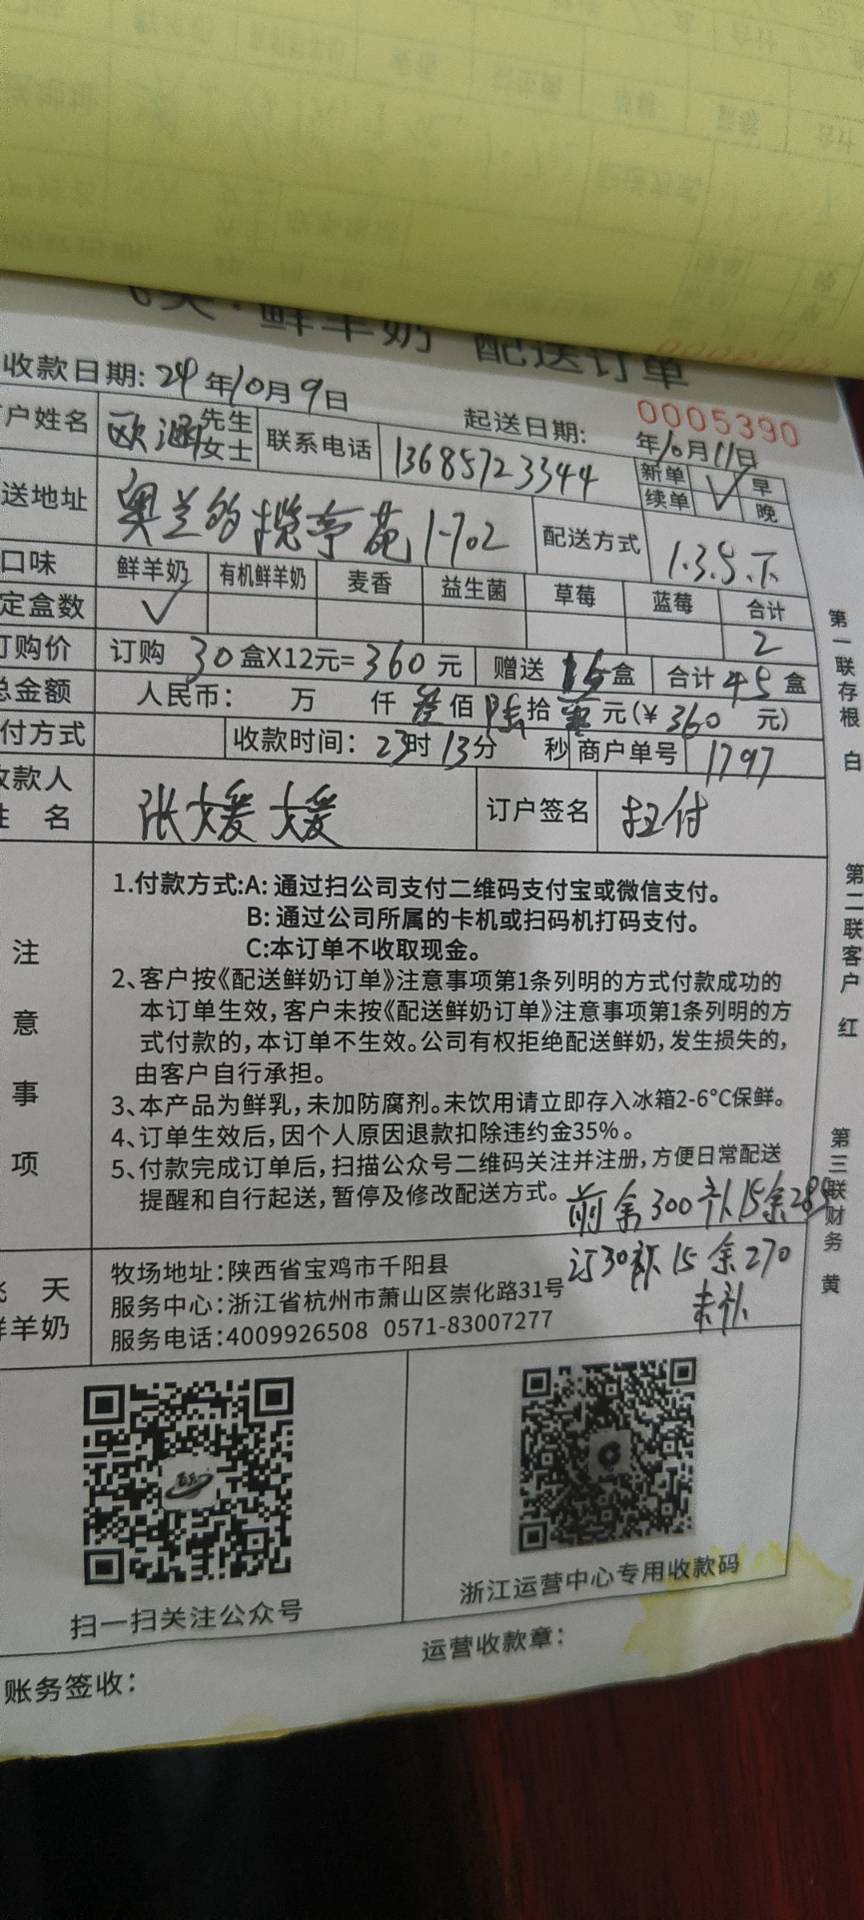 飞天·鲜羊奶 配送订单
0005390
收款日期: 24年10月9日 起送日期: 年10月11日
户姓名 欧 先生 女士 联系电话 13685723344 新单 续单 ✓ 早 晚
送地址 奥兰的揽亭苑1-702 配送方式 1.3.5.下
口味 鲜羊奶 有机鲜羊奶 麦香 益生菌 草莓 蓝莓 合计
定盒数 ✓ 2
订购价 订购 30盒X12元=360元 赠送 15盒 合计45盒
总金额 人民币: 万 仟 叁佰陆拾零元(¥360元)
付方式 收款时间: 23时13分 秒 商户单号 1797
收款人姓 名 张媛媛 订户签名 扫付
注意事项
1.付款方式:A: 通过扫公司支付二维码支付宝或微信支付。
B: 通过公司所属的卡机或扫码机打码支付。
C:本订单不收取现金。
2、客户按《配送鲜奶订单》注意事项第1条列明的方式付款成功的
本订单生效,客户未按《配送鲜奶订单》注意事项第1条列明的方
式付款的,本订单不生效。公司有权拒绝配送鲜奶,发生损失的,
由客户自行承担。
3、本产品为鲜乳,未加防腐剂。未饮用请立即存入冰箱2-6°C保鲜。
4、订单生效后,因个人原因退款扣除违约金35%。
5、付款完成订单后,扫描公众号二维码关注并注册,方便日常配送
提醒和自行起送,暂停及修改配送方式。
前余300补15余285
订30补15余270
未补
飞 天
鲜羊奶
牧场地址:陕西省宝鸡市千阳县
服务中心:浙江省杭州市萧山区崇化路31号
服务电话:4009926508 0571-83007277
扫一扫关注公众号
浙江运营中心专用收款码
账务签收:
运营收款章:
第一联存根 白
第二联客户 红
第三联财务 黄